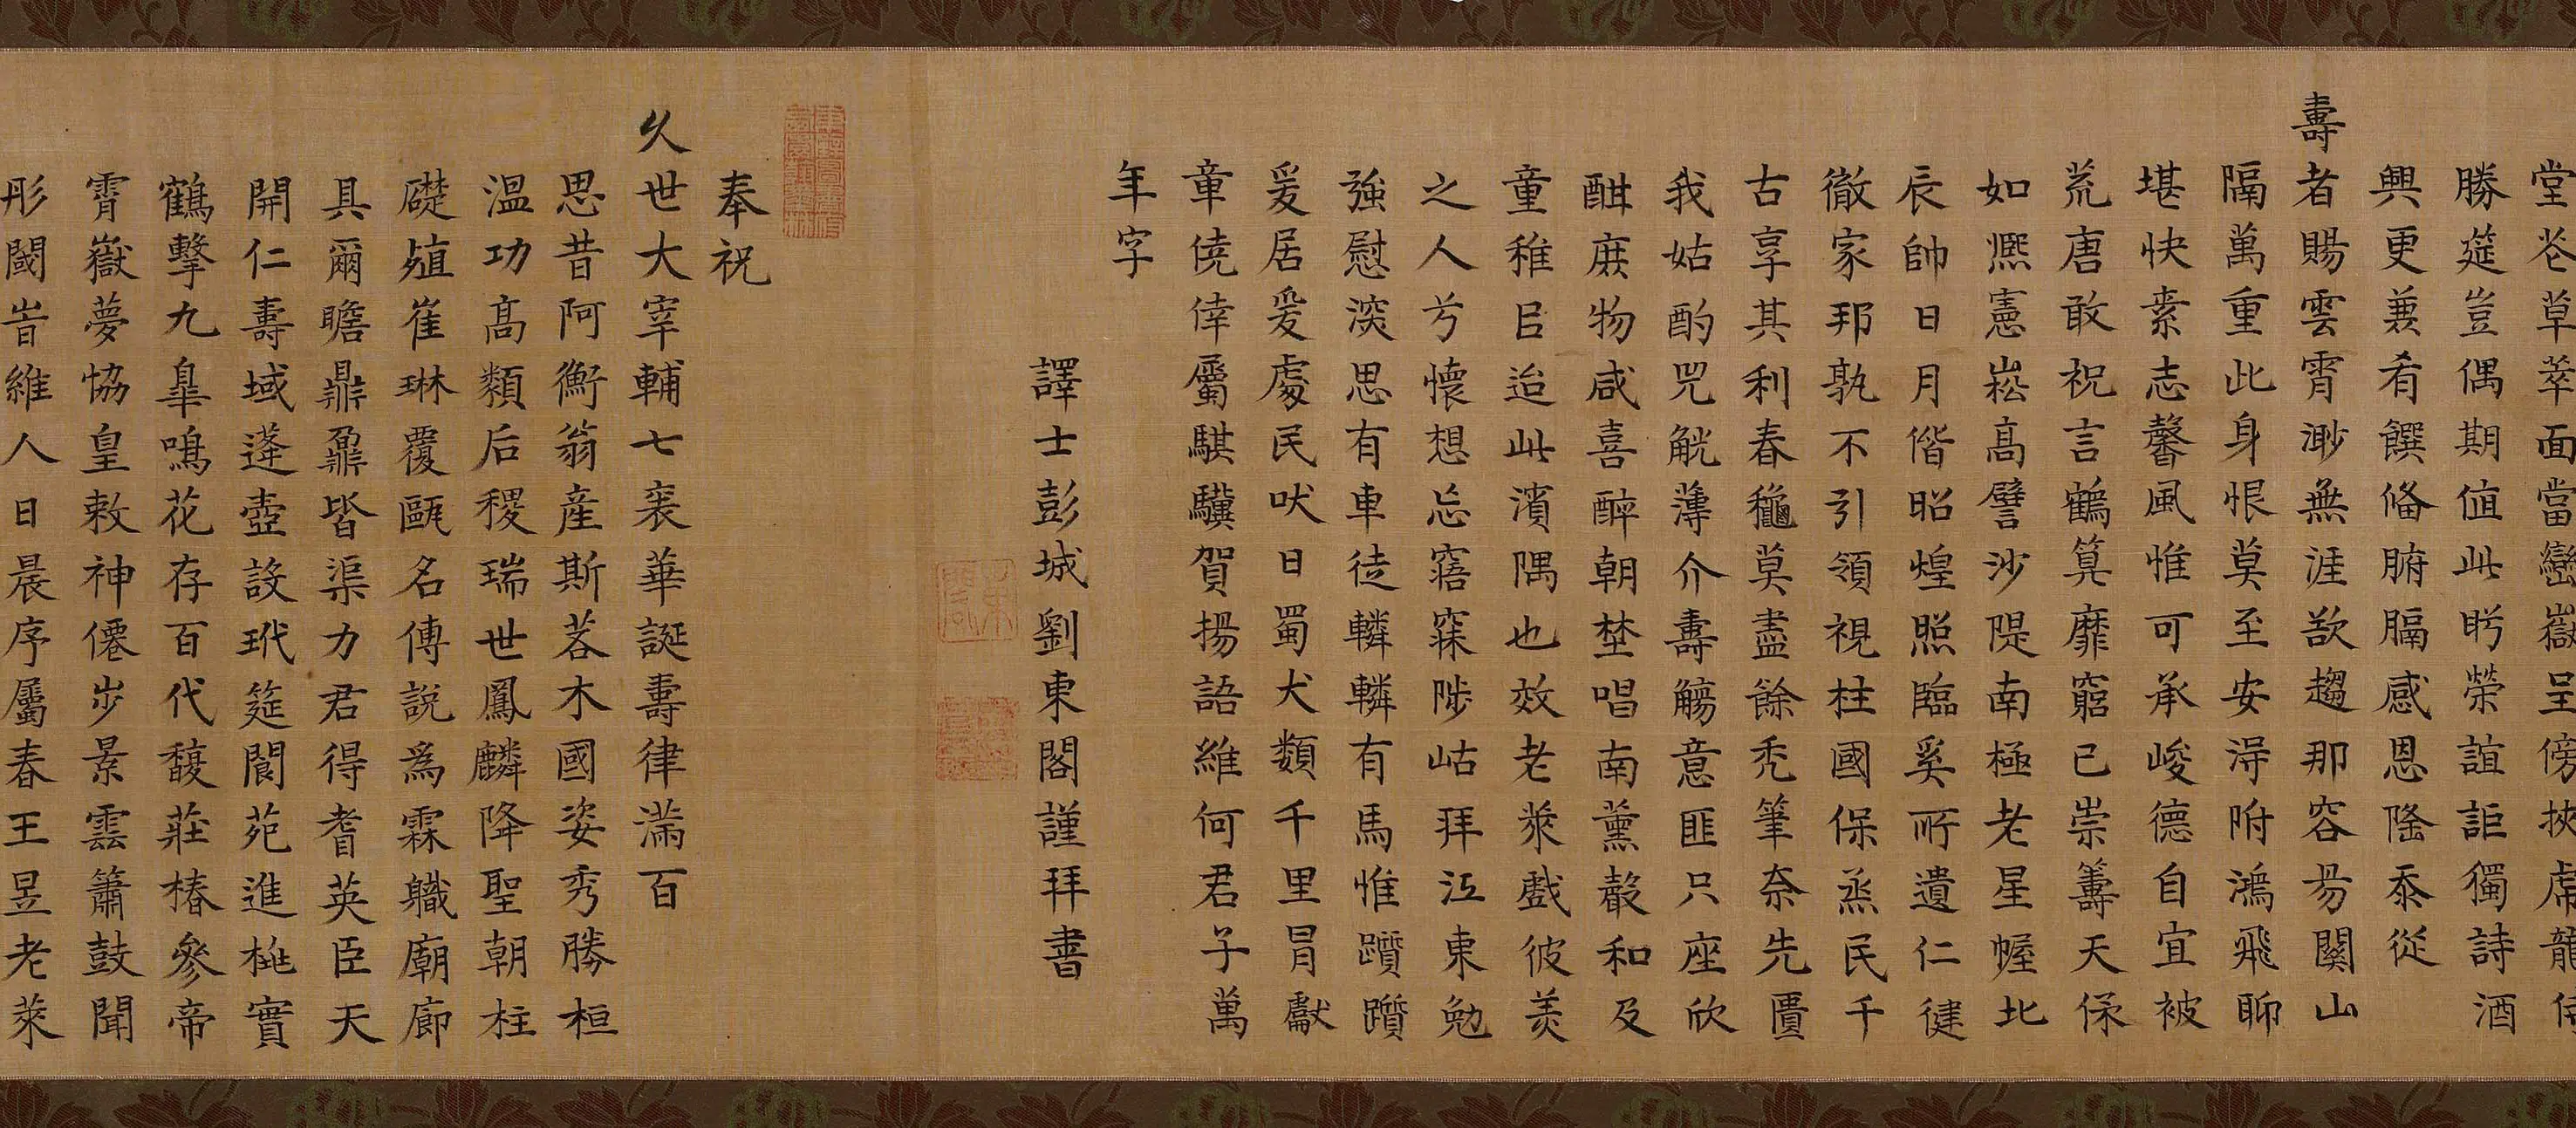 堂花草萃面當巒嶽呈傍挾席龍
勝莚豈偶期値此盻榮誼詎獨詩酒
興更兼肴饌俻腑膈感恩隆忝從
壽者賜雲霄渺無涯欲趨那容昜関山
隔萬重此身恨莫至安淂附鴻飛聊
堪快素志馨風惟可承峻德自宜被
荒唐敢祝言鶴筭靡窮已崇籌天保
如凞憲崧高譬沙隄南極老星幄北
辰帥日月偕昭煌照臨奚所遺仁徤
徹家邦孰不引領視柱國保烝民千
古享其利春穐莫盡餘禿筆奈先匱
我姑酌兕觥薄介壽觴意匪只座欣
酣庶物咸喜醉朝埜唱南薰聲和及
童稚㠯迨此濱隅也效老萊戲彼羙
之人兮懷想忘寤寐陟岵拜江東勉
強慰深思有車徒轔轔有馬惟躓躓
爰居爰處民吠日蜀犬類千里冐獻
章僥倖屬騏驥賀揚語維何君子萬
年字
譯士彭城劉東閣謹拜書
奉祝
久世大宰輔七袠華誕壽律滿百
思昔阿衡翁産斯茗木國姿秀勝桓
溫功高類后稷瑞世鳳麟降聖朝柱
礎殖崔琳覆甌名傳説爲霖職廟廊
具爾瞻鼎鼐皆渠力君得耆英臣天
開仁壽域蓬壺設玳筵閬苑進桃實
鶴擊九臯鳴花存百代馥莊椿參帝
霄嶽夢協皇敕神僊步景雲簫鼓聞
彤閾旹維人日晨序屬春王昱老萊